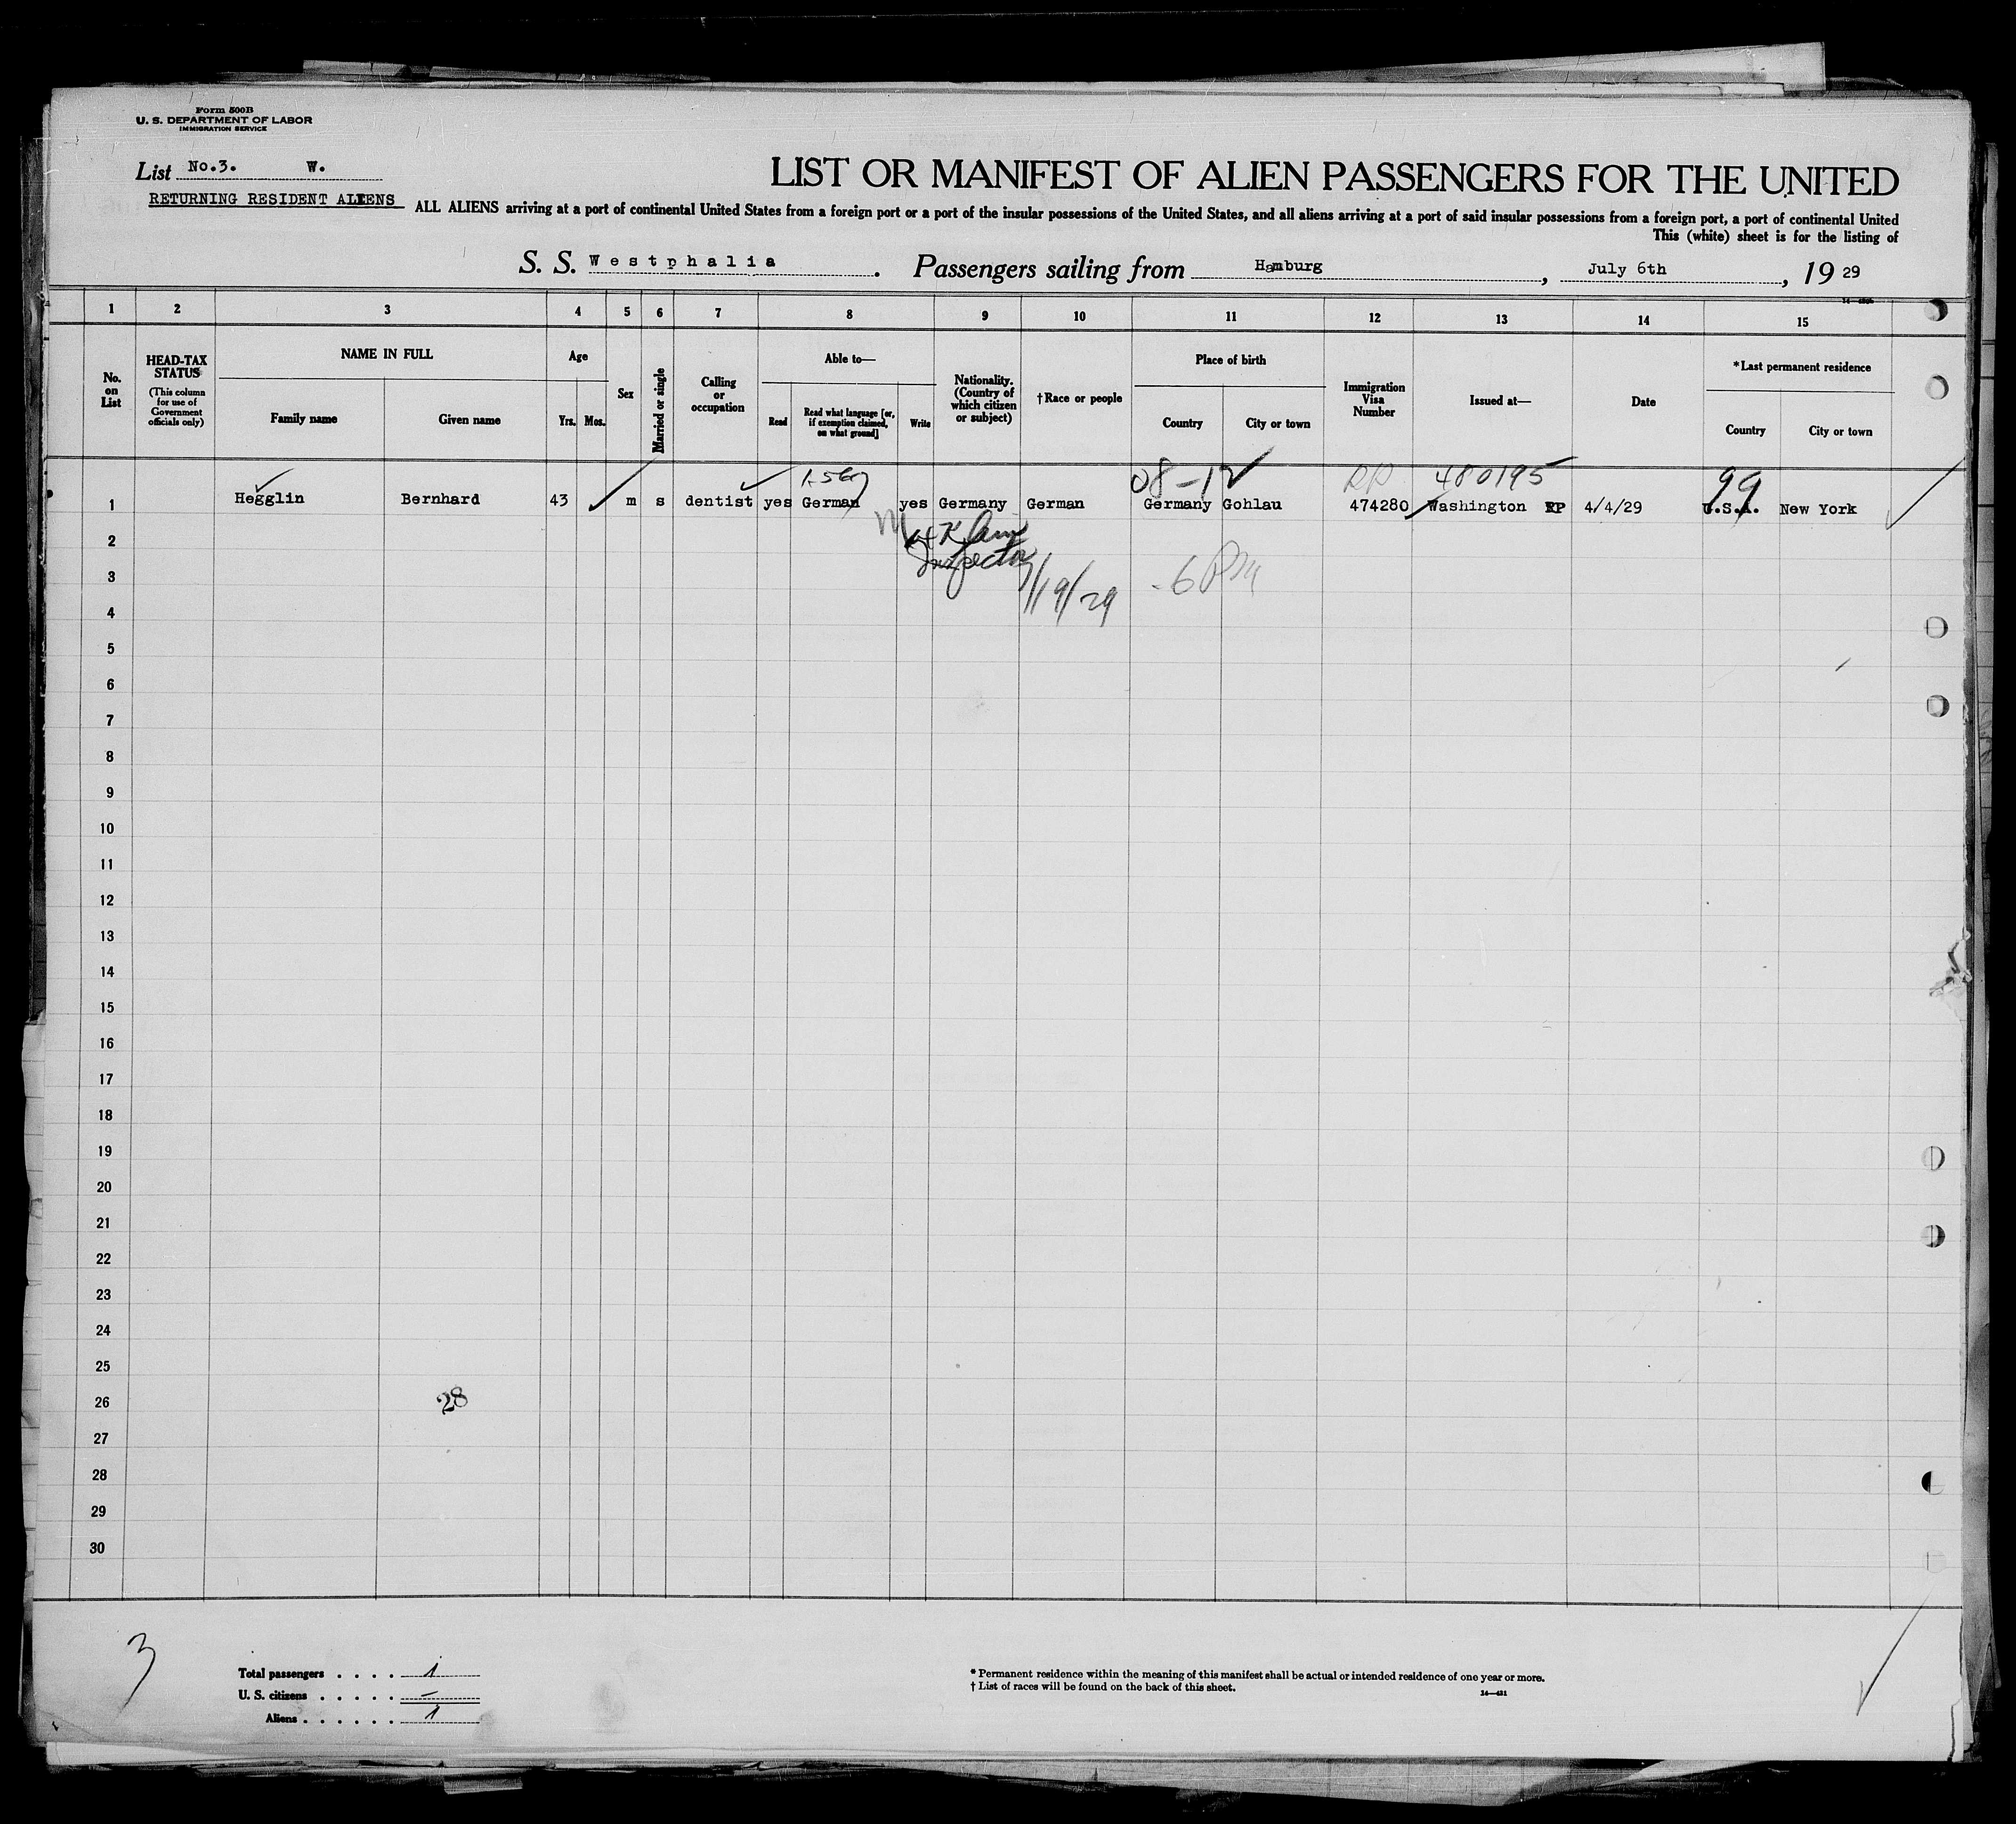 Form 500B
U. S. DEPARTMENT OF LABOR
IMMIGRATION SERVICE
List No.3. W.
RETURNING RESIDENT ALIENS
LIST OR MANIFEST OF ALIEN PASSENGERS FOR THE UNITED
ALL ALIENS arriving at a port of continental United States from a foreign port or a port of the insular possessions of the United States, and all aliens arriving at a port of said insular possessions from a foreign port, a port of continental United
This (white) sheet is for the listing of
S. S. Westphalia. Passengers sailing from Hamburg, July 6th, 19 29
1 2 3 4 5 6 7 8 9 10 11 12 13 14 15
No. on List
HEAD-TAX STATUS
(This column for use of Government officials only)
NAME IN FULL
Family name Given name
Age
Yrs. Mos.
Sex
Married or single
Calling or occupation
Able to—
Read Read what language [or, if exemption claimed, on what ground] Write
Nationality. (Country of which citizen or subject)
†Race or people
Place of birth
Country City or town
Immigration Visa Number
Issued at—
Date
*Last permanent residence
Country City or town
08-12 RP 480195 99
1 Hegglin Bernhard 43 m s dentist yes German yes Germany German Germany Gohlau 474280 Washington RP 4/4/29 U.S.A. New York
2
Inspector
3 7/19/29 6 PM
4
5
6
7
8
9
10
11
12
13
14
15
16
17
18
19
20
21
22
23
24
25
26 28
27
28
29
30
3
Total passengers . . . . 1
U. S. citizens . . . . . –
Aliens . . . . . . 1
* Permanent residence within the meaning of this manifest shall be actual or intended residence of one year or more.
† List of races will be found on the back of this sheet.